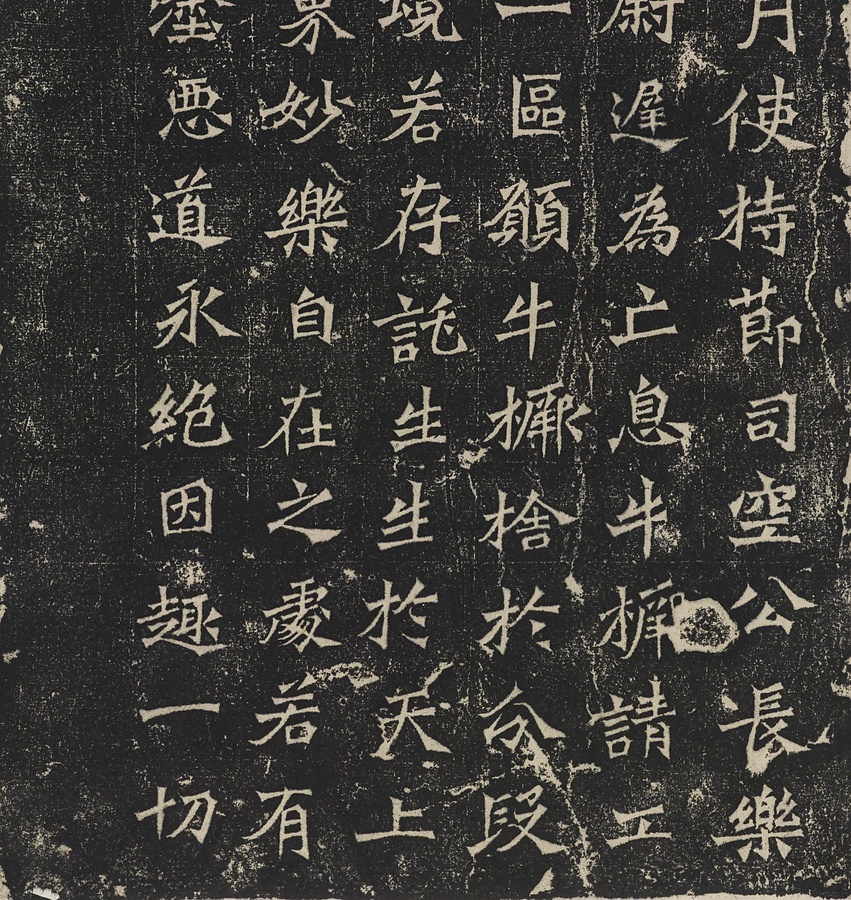 月使持節司空公長樂
尉遲為亡息牛橛請工
一區願牛橛捨於分段
境若存託生生於天上
界妙樂自在之處若有
塗惡道永絶因趣一切